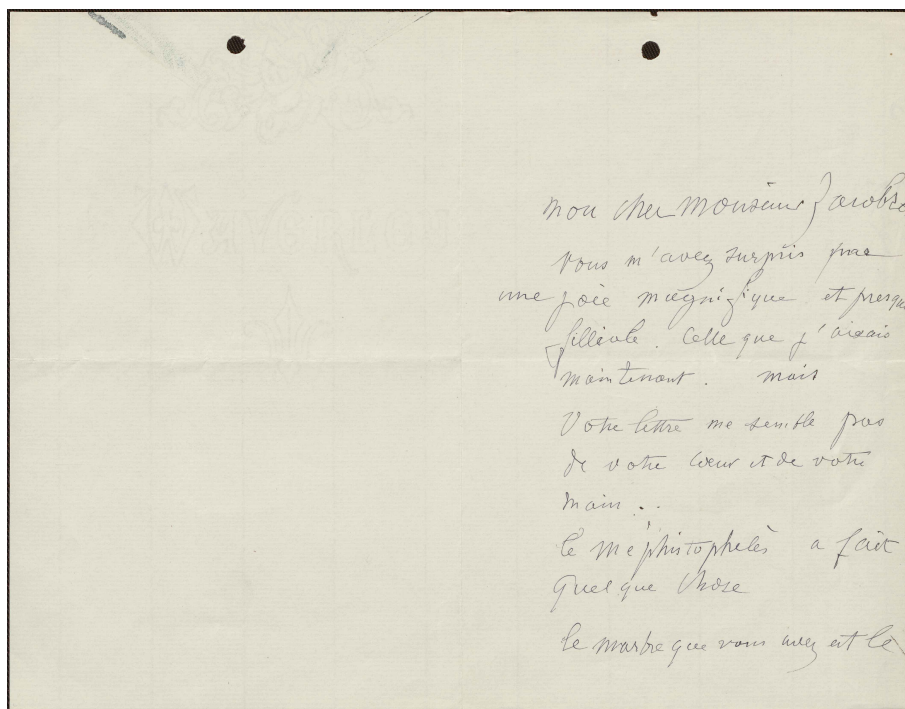 mon cher monsieur Jacobse
vous m'avez surpris par
une joie magnifique et presque
filleule. Celle que j'aurais
maintenant. mais
Votre lettre me semble pas
de votre cœur et de votre
main..
le méphistophelès a fait
quelque chose
le marbre que vous avez est le